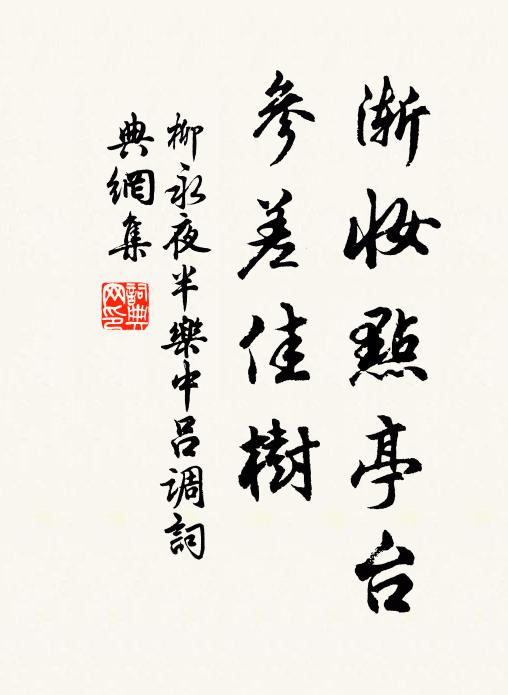 漸妝點亭台
參差佳樹
柳永夜半樂中呂调詞
典網集
詞典網印